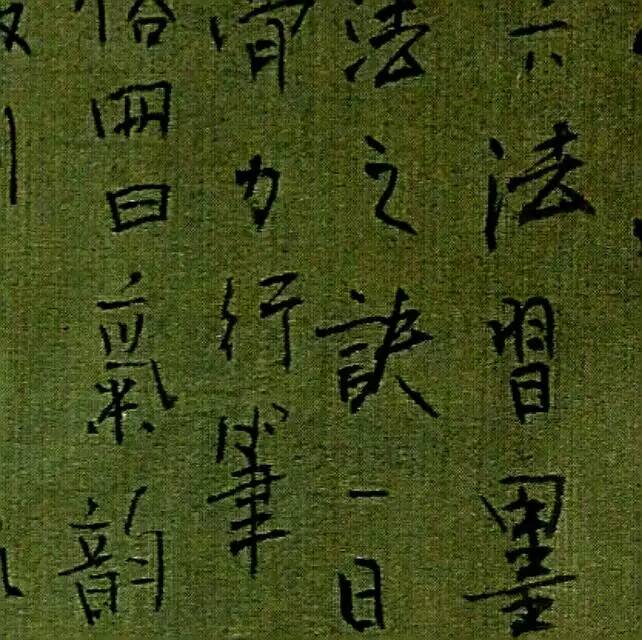 六法習墨
法之訣一曰
力行筆
俗四曰氣韻